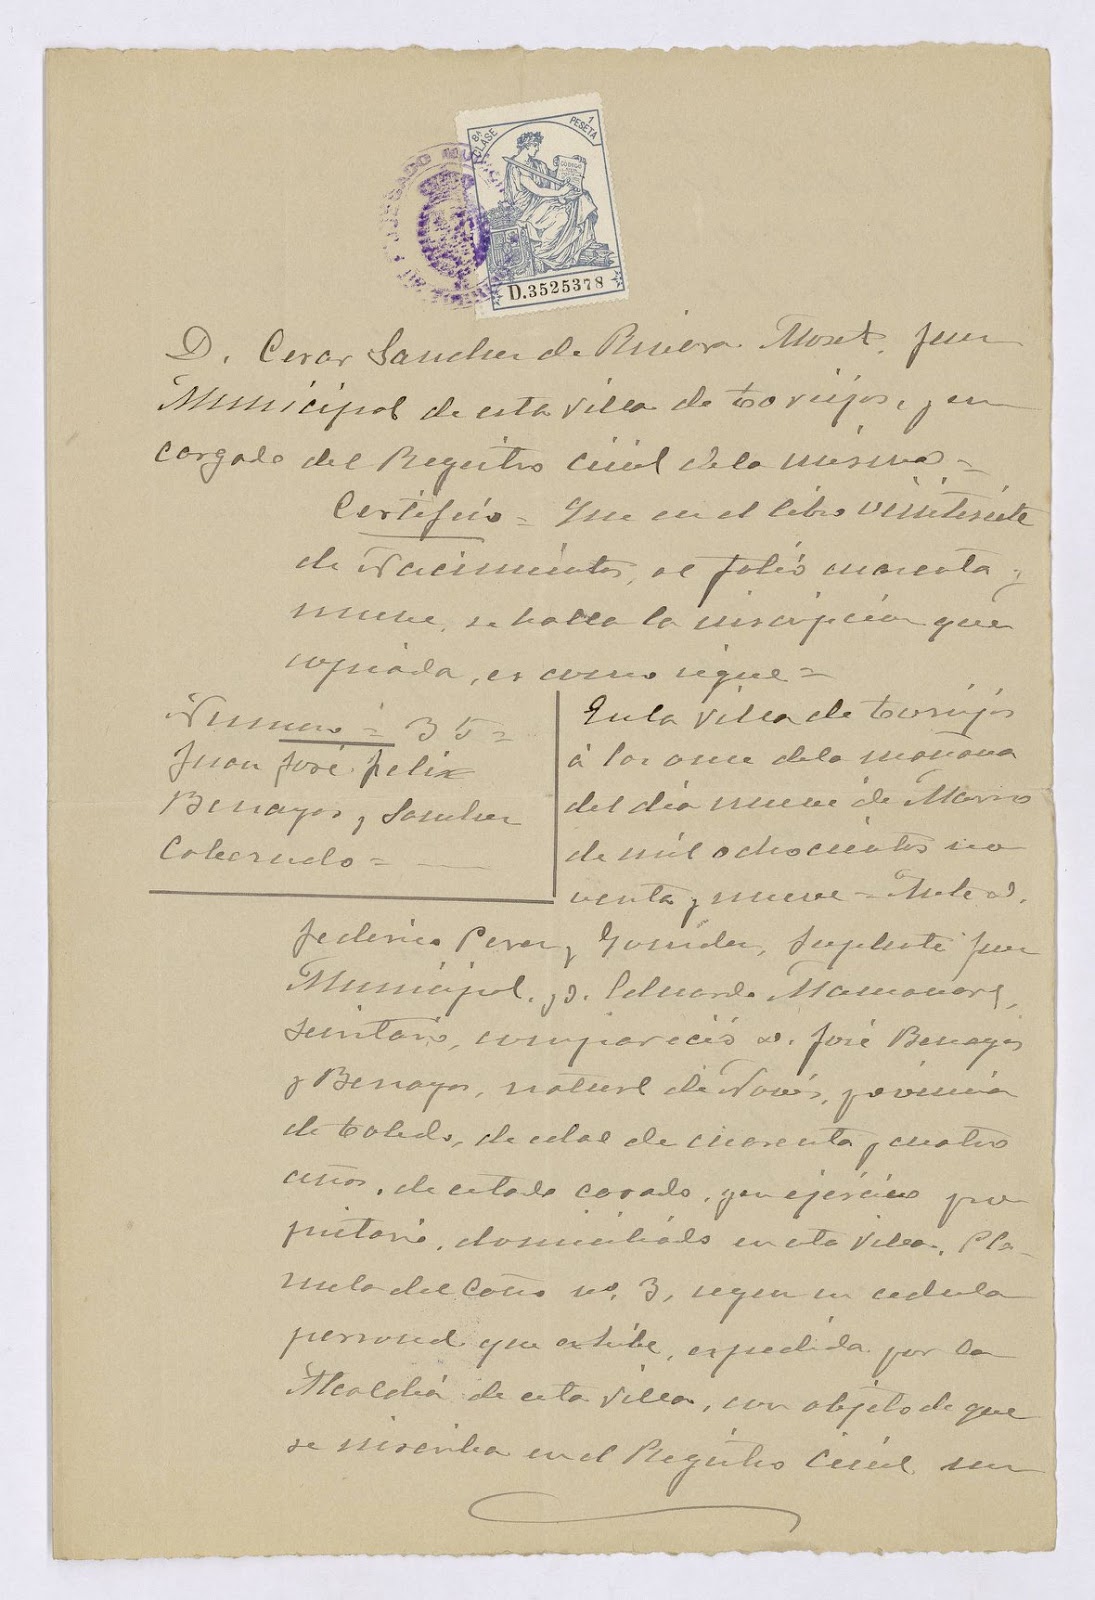 8ª CLASE
1 PESETA
CODIGO
D.3525378
JUZGADO MUNICIPAL
D. Cesar Sanchez de Rivera Moset, Juez
Municipal de esta villa de Torrijos, y en
cargado del Registro Civil de la misma =
Certifico = Que en el libro veintisiete
de Nacimientos, al folio cuarenta y
nueve, se halla la inscripcion que
copiada, es como sigue =
Numero = 35 =
Juan José Felix
Benayas y Sanchez
Cabezudo =
En la villa de Torrijos
á las once de la mañana
del dia nueve de Marzo
de mil ochocientos no
venta y nueve = Ante D.
Federico Perez y Gonzalez, Suplente Juez
Municipal, y D. Eduardo
Secretario, compareció D. José Benayas
y Benayas, natural de Novés, provincia
de Toledo, de edad de cuarenta y cuatro
años, de estado casado, y en ejercicio pro
pietario, domiciliado en esta villa, Pla-
zuela del Caño nº. 3, segun su cedula
personal que exhibe, expedida por la
Alcaldia de esta villa, con objeto de que
se inscriba en el Registro Civil un